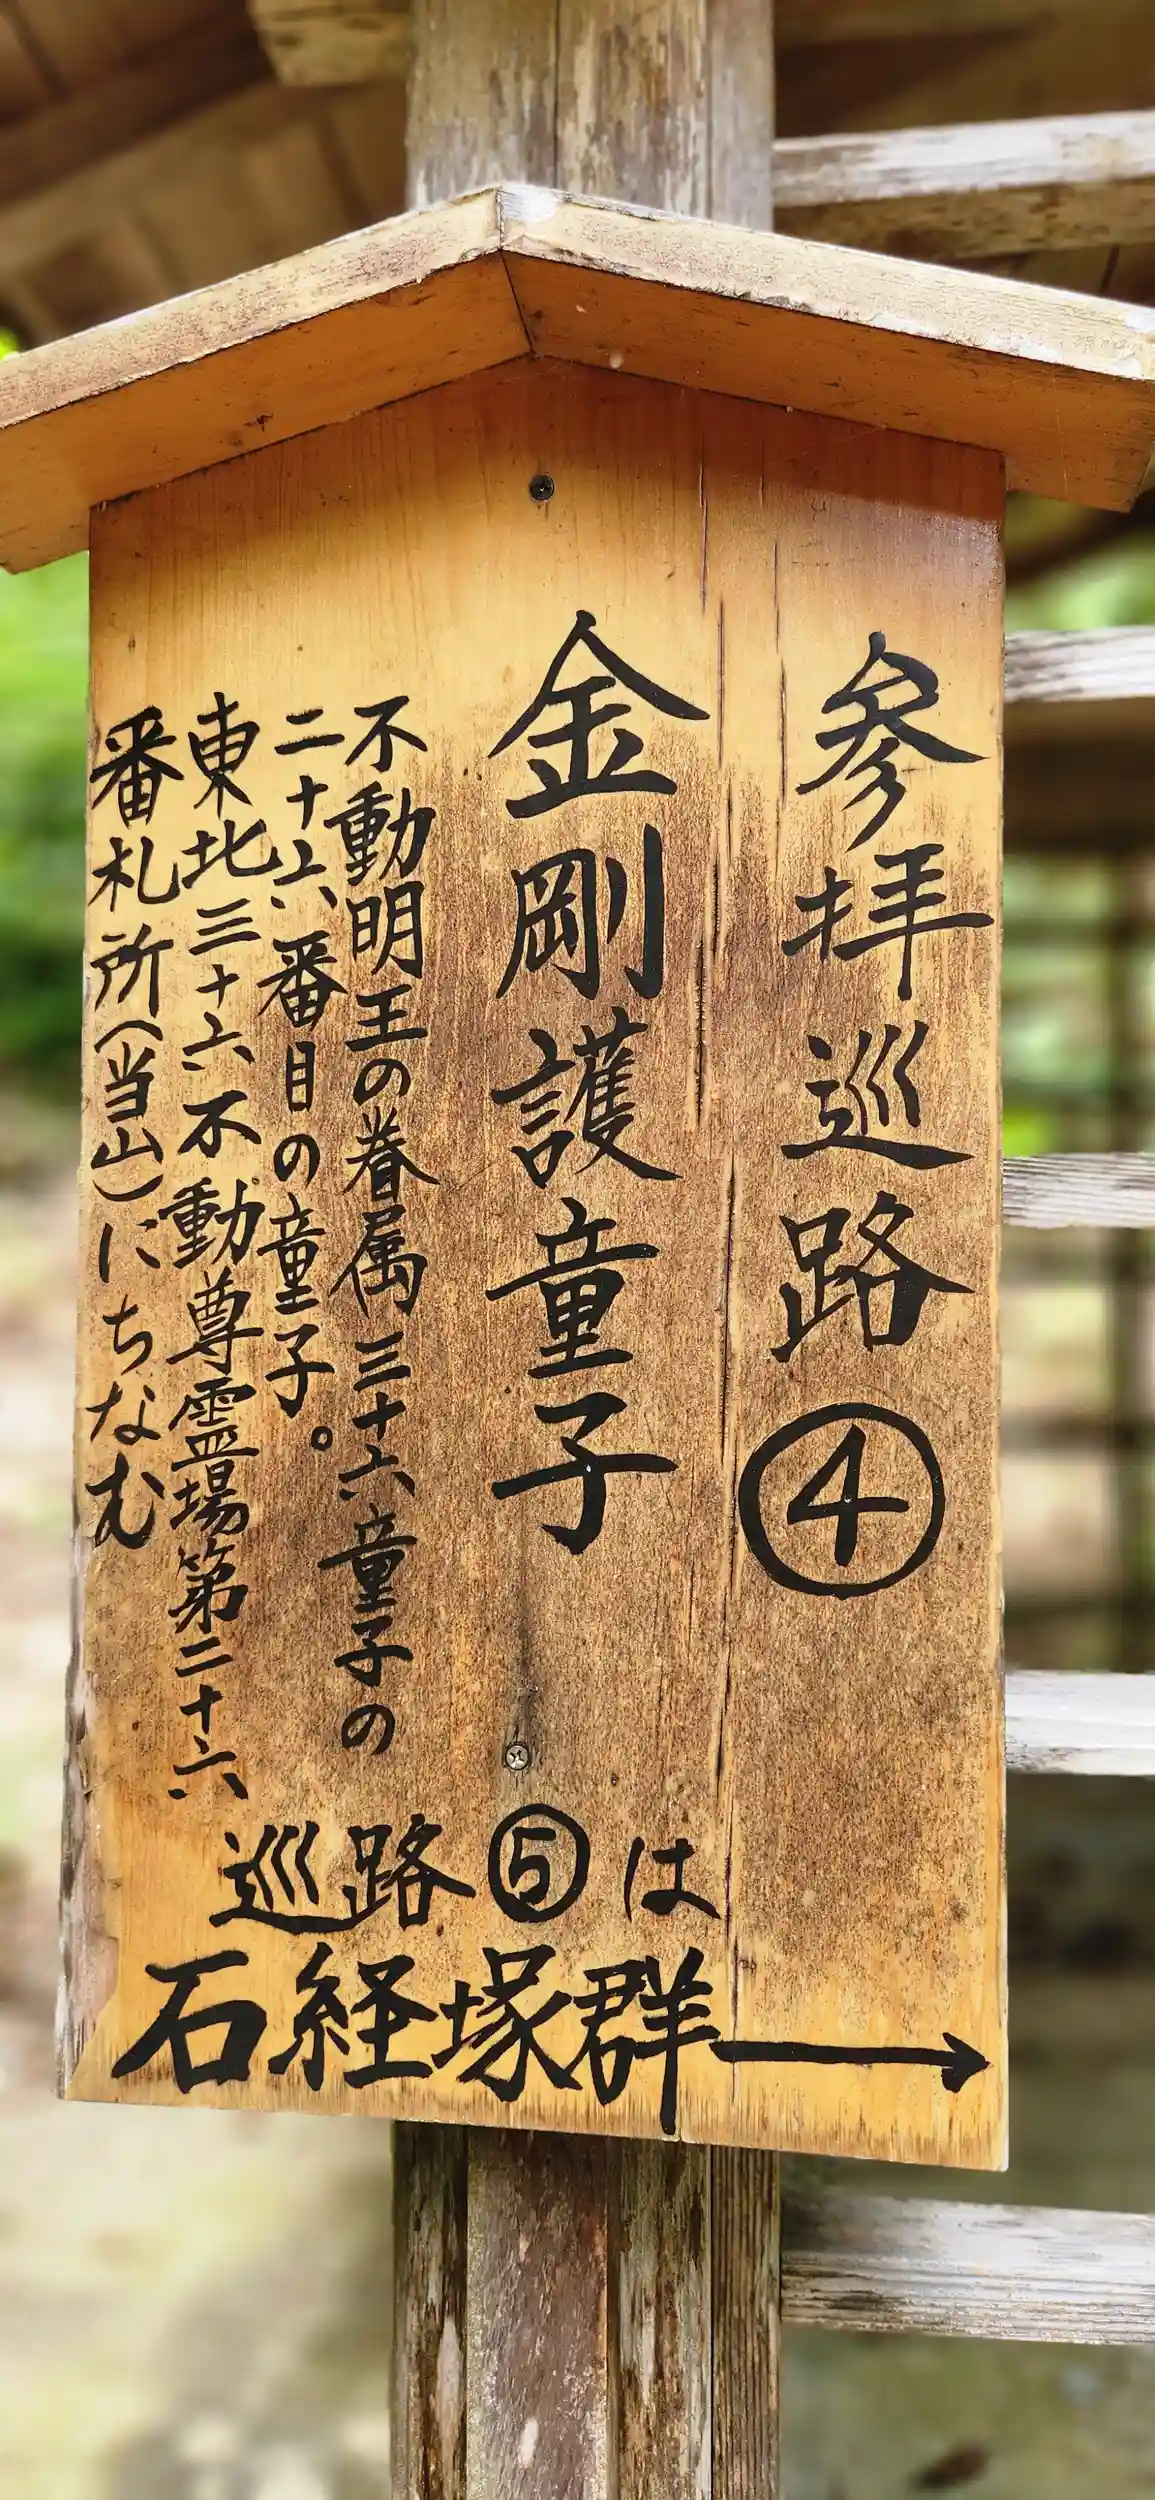 参拝巡路④
金剛護童子
不動明王の眷属三十六童子の
二十六番目の童子。
東北三十六不動尊霊場第二十六
番札所(当山)にちなむ
巡路⑤は
石経塚群→